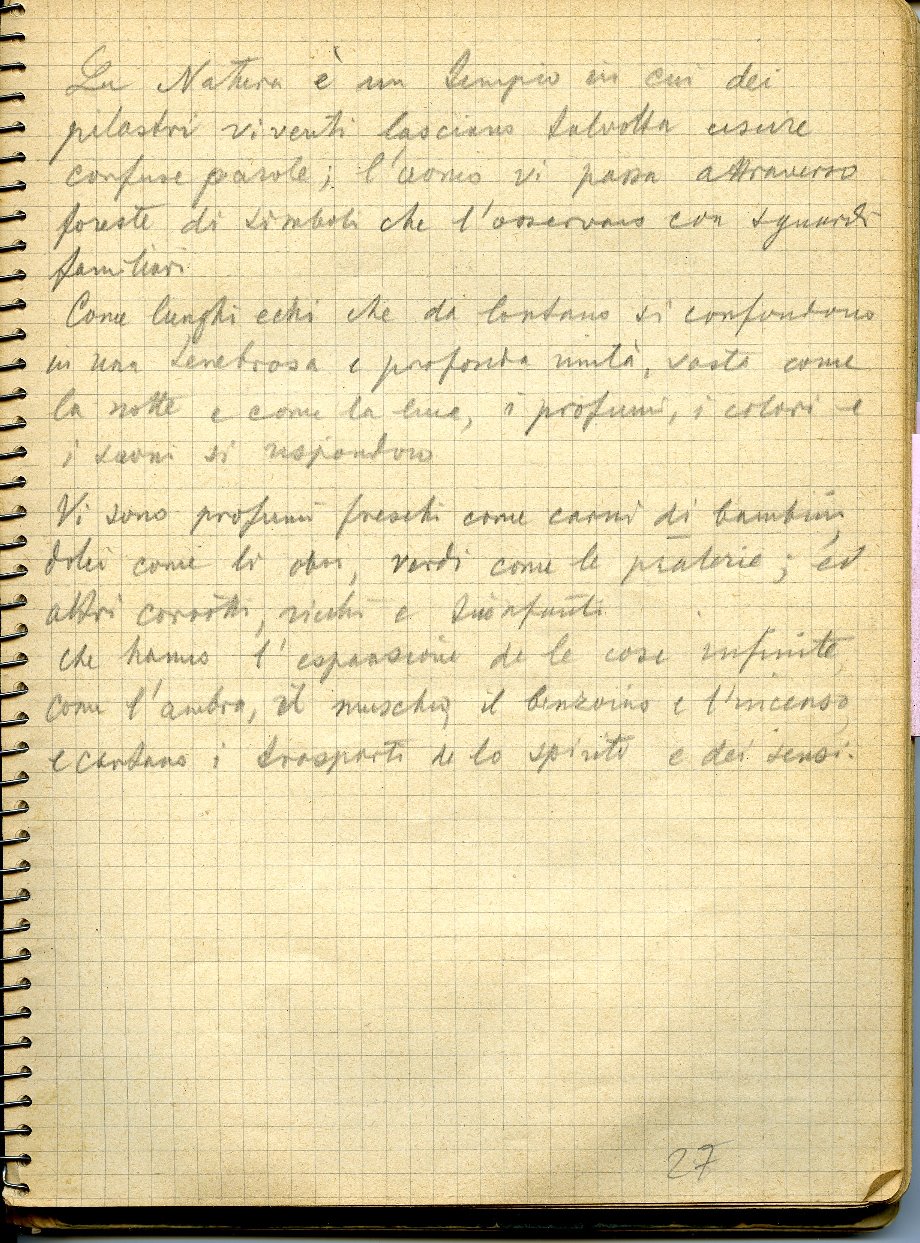 La Natura è un tempio in cui dei
pilastri viventi lasciano talvolta uscire
confuse parole; l'uomo vi passa attraverso
foreste di simboli che l'osservano con sguardi
familiari
Come lunghi echi che da lontano si confondono
in una tenebrosa e profonda unità, vasta come
la notte e come la luce, i profumi, i colori e
i suoni si rispondono
Vi sono profumi freschi come carni di bambini,
dolci come li oboi, verdi come le praterie; ed
altri corrotti, ricchi e trionfanti
che hanno l'espansione de le cose infinite,
come l'ambra, il muschio, il benzoino e l'incenso,
e cantano i trasporti de lo spirito e dei sensi.
27